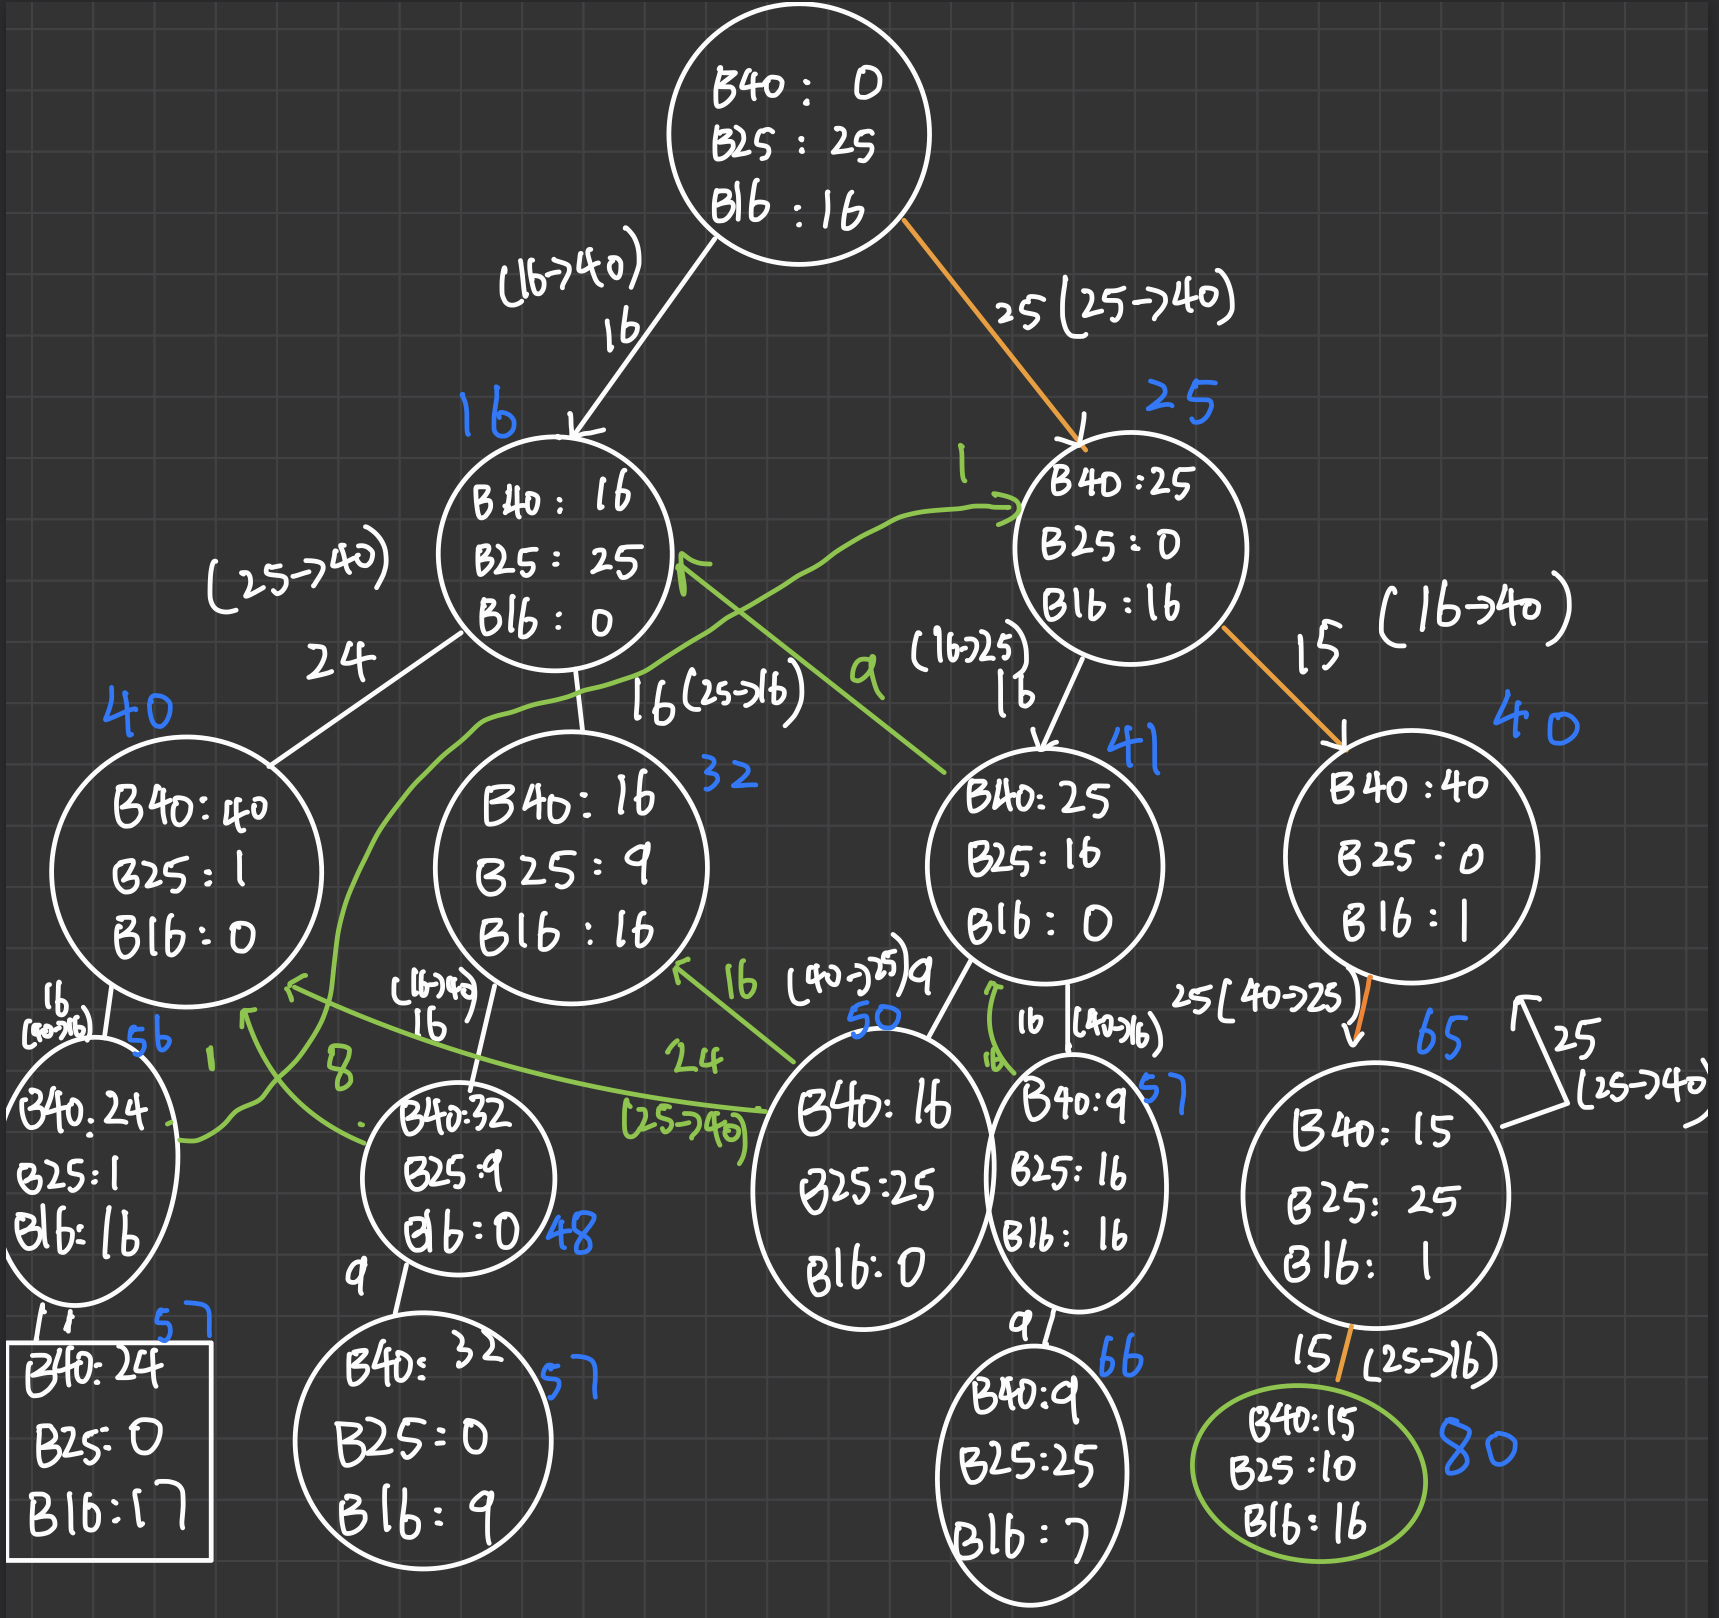 B40: 0
B25: 25
B16: 16
(16→40)
16
25 (25→40)
16
25
B40: 16
B25: 25
B16: 0
1
B40:25
B25:0
B16:16
(25→40)
24
16 (25→16)
9
(16→25)
16
15 (16→40)
40
32
41
40
B40:40
B25:1
B16:0
B40: 16
B25: 9
B16: 16
B40: 25
B25: 16
B16: 0
B40:40
B25:0
B16:1
16
(40→16)
56
1
8
(16→40)
16
24
(25→40)
16
(40→25) 9
50
16 (40→16)
16
57
25 (40→25)
65
25
(25→40)
B40:24
B25:1
B16:16
B40:32
B25:9
B16:0
48
B40: 16
B25:25
B16:0
B40:9
B25:16
B16:16
B40: 15
B25: 25
B16: 1
1
57
9
57
9
66
15 (25→16)
80
B40:24
B25:0
B16:17
B40: 32
B25:0
B16:9
B40:9
B25:25
B16:7
B40:15
B25:10
B16:16